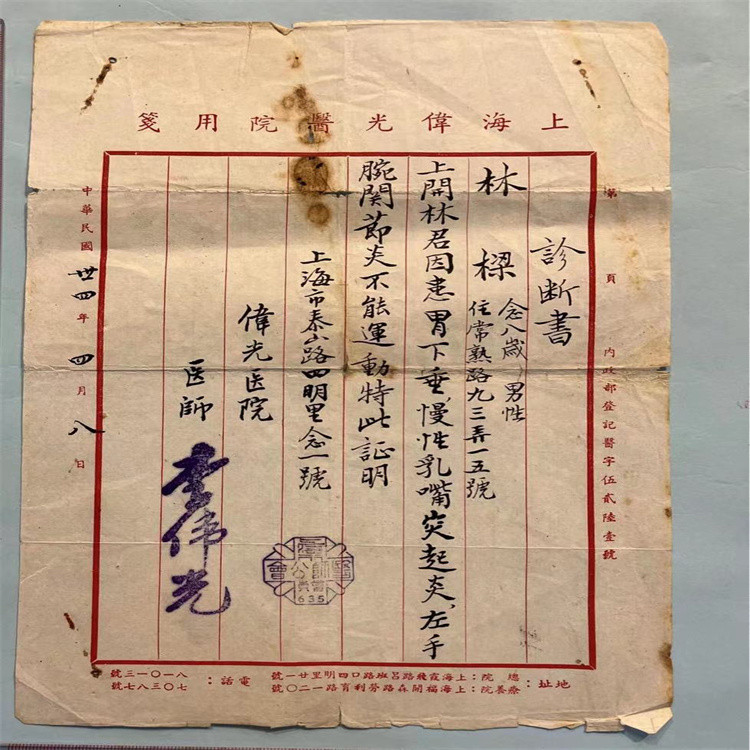 上海偉光醫院用箋
第 頁 內政部登記醫字伍貳陸壹號
診断書
林樑 念八歲，男性
住常熟路九三弄一五號
上開林君因患胃下垂、慢性乳嘴突起炎、左手
腕関節炎不能運動特此証明
上海市泰山路四明里念一號
偉光医院
医師 李偉光
醫師公會
會員
635
中華民國卅四年四月八日
地址：總院：上海霞飛路呂班路口四明里廿一號
療養院：上海福開森路芬利育路一二〇號
電話：八一〇一三號
七〇三八七號